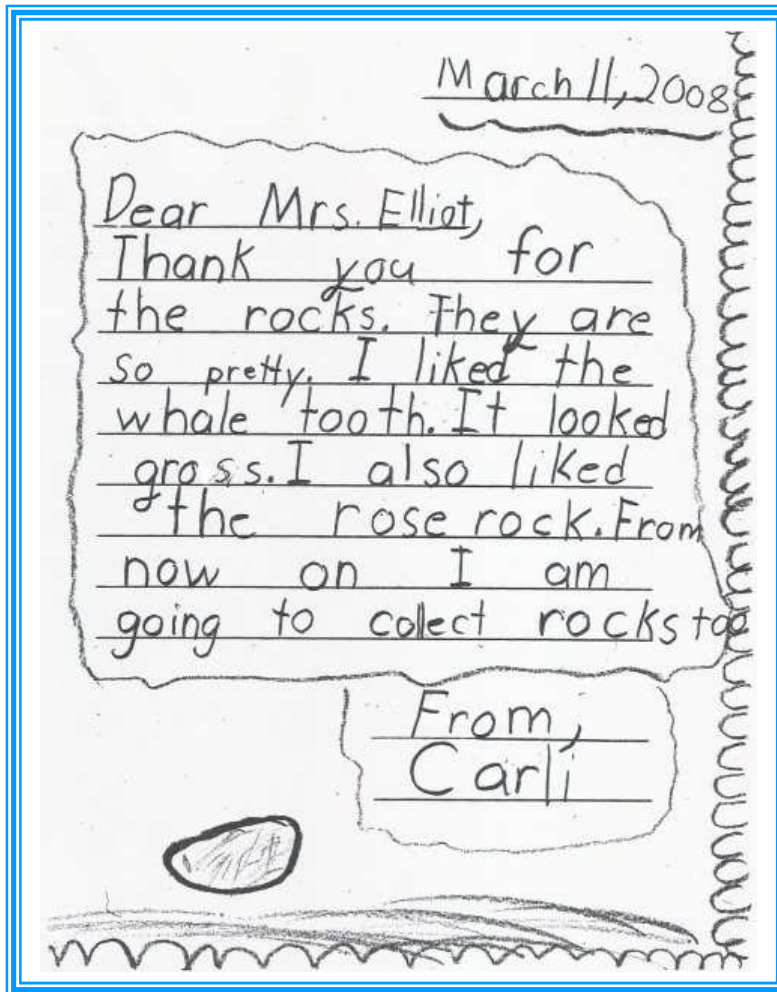 March 11, 2008
Dear Mrs. Elliot,
Thank you for
the rocks. They are
so pretty. I liked the
whale tooth. It looked
gross. I also liked
the rose rock. From
now on I am
going to colect rocks too
From,
Carli